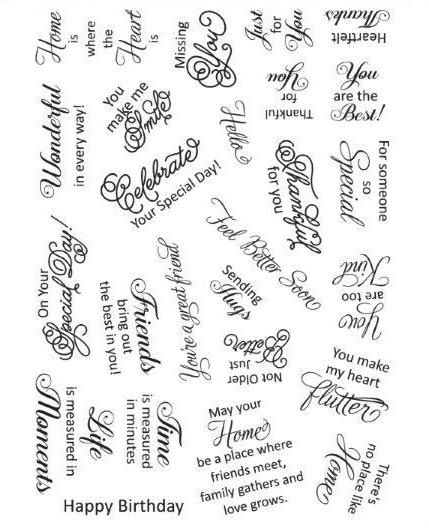 Home
is
where
the
Heart
is
Missing
You
Just
for
You
Heartfelt
Thanks
Wonderful
in every way!
You
make me
Smile
Hello
Thankful
for
You
You
are the
Best!
Celebrate
Your Special Day!
Thankful
for you
For someone
so
Special
On Your
Special Day!
Friends
bring out
the best in you!
You're a great friend
Feel Better Soon
Sending
Hugs
You
are too
Kind
Not Older
Just
Better
You make
my heart
flutter
Moments
is measured in
Life
Time
is measured
in minutes
May your
Home
be a place where
friends meet,
family gathers and
love grows.
There's
no place like
Home
Happy Birthday